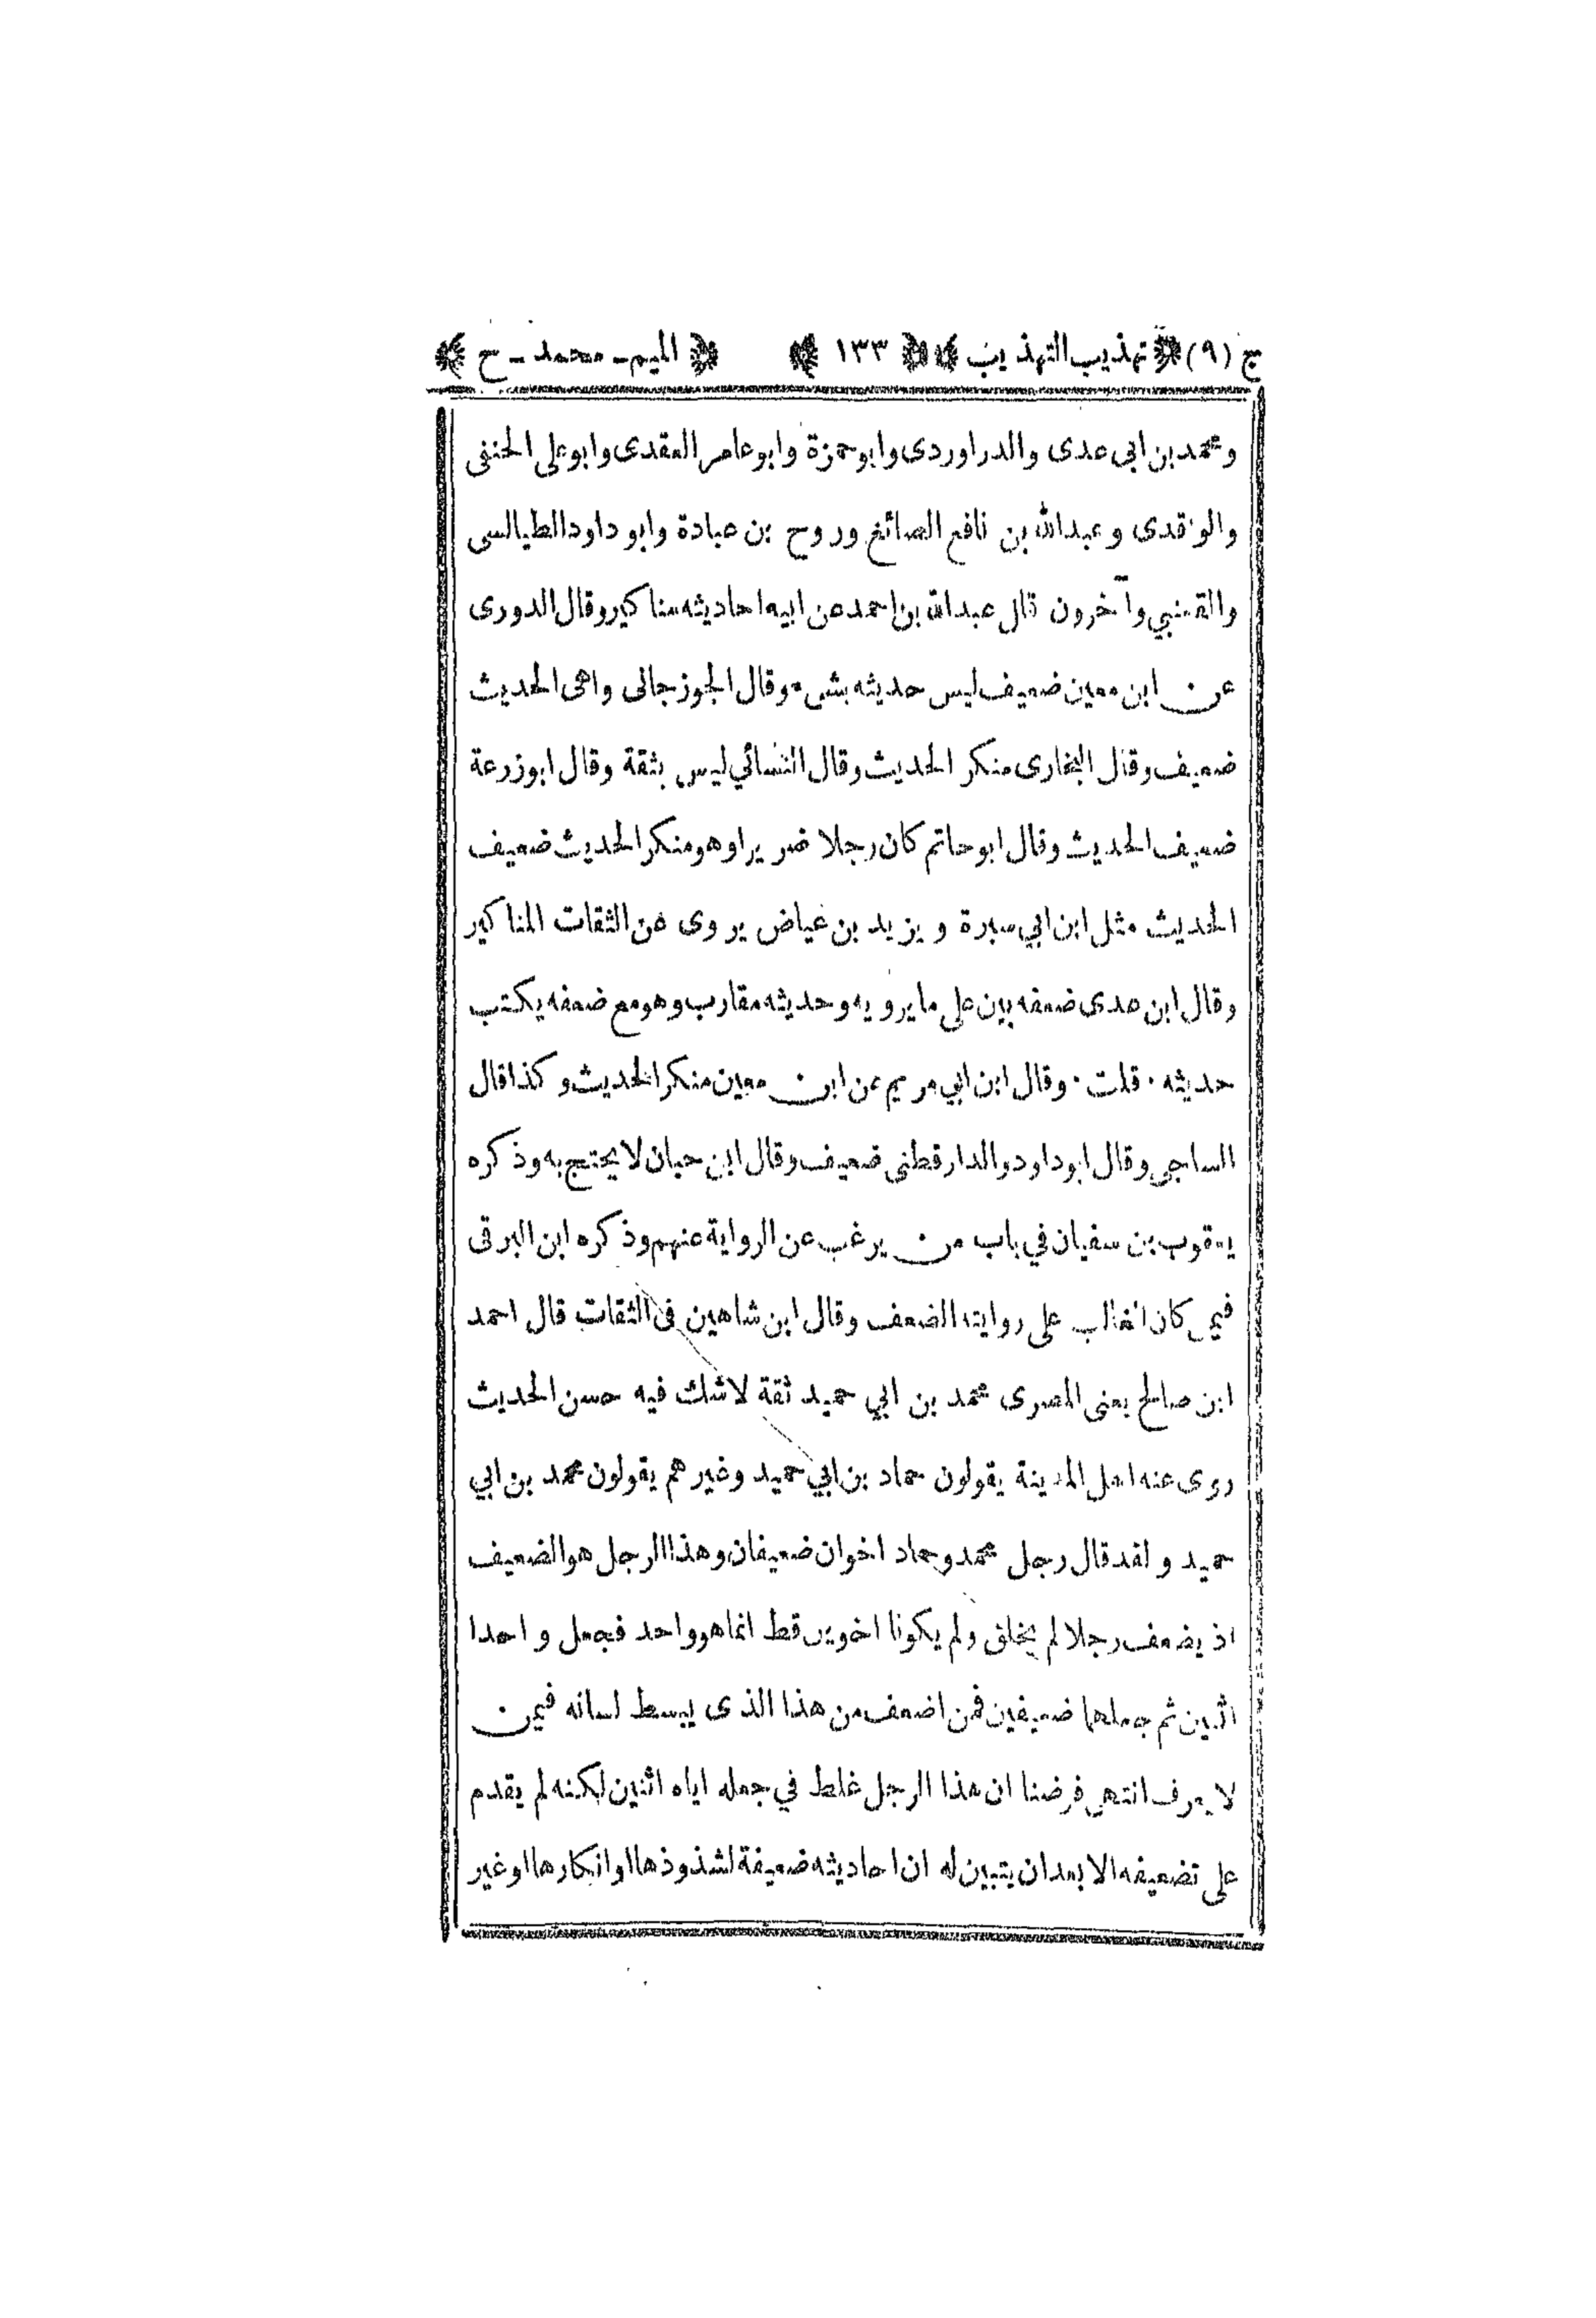 ج (٩) ﴿ تهذيب التهذيب ﴾ ﴿ ١٣٣ ﴾ ﴿ الميم - محمد - ح ﴾
ومحمد بن ابى عدى والدراوردى وابو حمزة وابو عامر العقدى وابو على الحنفى
والواقدى وعبدالله بن نافع الصائغ وروح بن عبادة وابو داود الطيالسى
والقعنبي وآخرون قال عبدالله بن احمد عن ابيه احاديثه مناكير وقال الدورى
عن ابن معين ضعيف ليس حديثه بشىء وقال الجوزجانى واهى الحديث
ضعيف وقال البخارى منكر الحديث وقال النسائي ليس بثقة وقال ابوزرعة
ضعيف الحديث وقال ابوحاتم كان رجلا ضريرا وهو منكر الحديث ضعيف
الحديث مثل ابن ابي سبرة ويزيد بن عياض يروى عن الثقات المناكير
وقال ابن عدى ضعفه بين على ما يرويه وحديثه مقارب وهو مع ضعفه يكتب
حديثه · قلت · وقال ابن ابي مريم عن ابن معين منكر الحديث وكذا قال
الساجي وقال ابوداود والدارقطنى ضعيف وقال ابن حبان لا يحتج به وذكره
يعقوب بن سفيان في باب من يرغب عن الرواية عنهم وذكره ابن البرقى
فيمن كان الغالب على روايته الضعف وقال ابن شاهين فى الثقات قال احمد
ابن صالح يعنى المصرى محمد بن ابي حميد ثقة لا شك فيه حسن الحديث
روى عنه اهل المدينة يقولون حماد بن ابي حميد وغيرهم يقولون محمد بن ابي
حميد ولقد قال رجل محمد وحماد اخوان ضعيفان وهذا الرجل هو الضعيف
اذ يضعف رجلا لم يخلق ولم يكونا اخوين قط انما هو واحد فجعل واحدا
اثنين ثم جعلهما ضعيفين فمن اضعف من هذا الذى يبسط لسانه فيمن
لا يعرف انتهى فرضنا ان هذا الرجل غلط في جعله اياه اثنين لكنه لم يقدم
على تضعيفه الا بعد ان يتبين له ان احاديثه ضعيفة لشذوذها او انكارها او غير